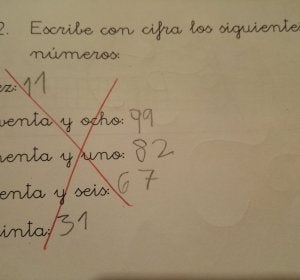 2. Escribe con cifra los siguientes
números:
ez: 11
venta y ocho: 99
enta y uno: 82
enta y seis: 67
inta: 31